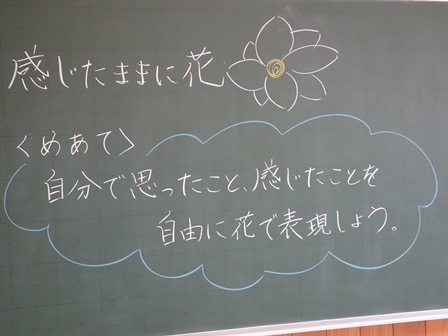 感じたままに花
〈めあて〉
自分で思ったこと、感じたことを
自由に花で表現しよう。